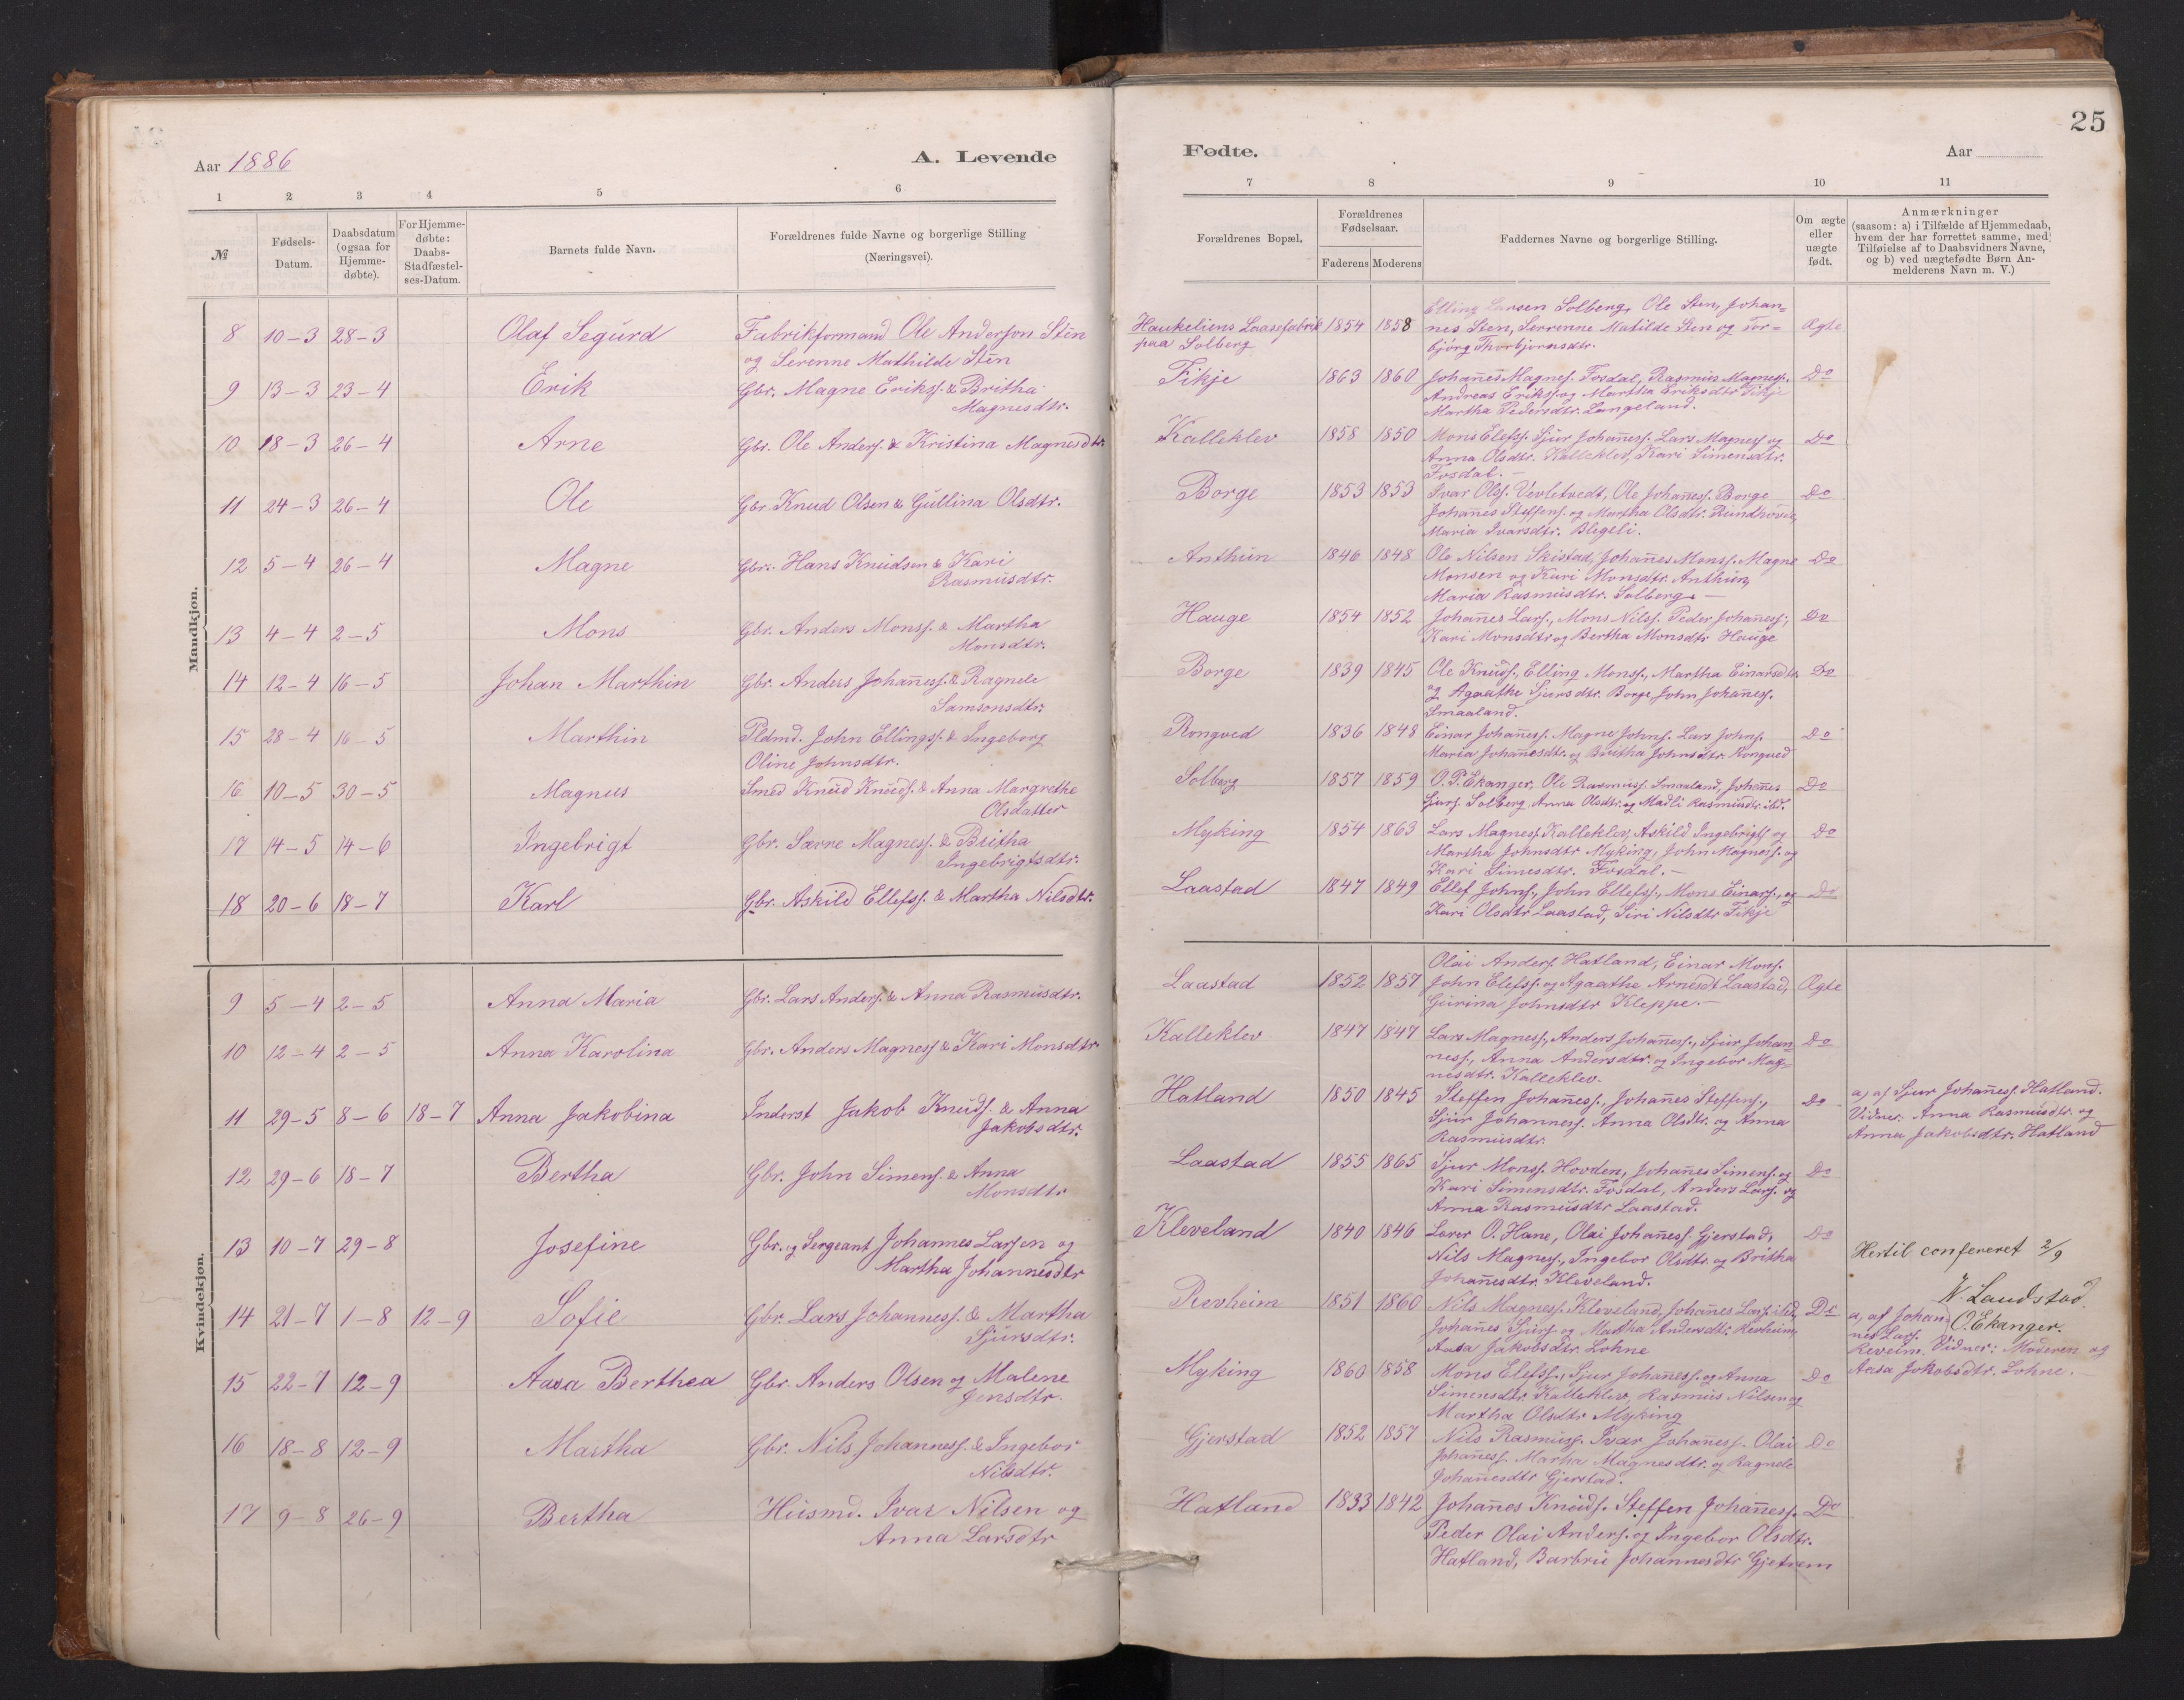 25
Aar 1886
A. Levende
Fødte.
Aar
1 2 3 4 5 6
№
Fødsels-
Datum.
Daabsdatum
(ogsaa for
Hjemme-
døbte).
For Hjemme-
døbte:
Daabs-
Stadfæstel-
ses-Datum.
Barnets fulde Navn.
Forældrenes fulde Navne og borgerlige Stilling
(Næringsvei).
7 8 9 10 11
Forældrenes Bopæl.
Forældrenes
Fødselsaar.
Faderens Moderens
Faddernes Navne og borgerlige Stilling.
Om ægte
eller
uægte
født.
Anmærkninger
(saasom: a) i Tilfælde af Hjemmedaab,
hvem der har forrettet samme, med
Tilføielse af to Daabsvidners Navne,
og b) ved uægtefødte Børn An-
melderens Navn m. V.)
Mandkjøn.
8 10-3 28-3 Olaf Segurd Fabrikformand Ole Anderson Sten
og Serenne Mathilde Sten
Haukeliens Laasefabrik 1854 1858
paa Solberg
Elling Larsen Solberg, Ole Sten, Johan-
nes Sten, Serrenne Matilde Sten og Tor-
björg Thorbjornsdtr.
Ægte
9 13-3 23-4 Erik Gbr. Magne Erikss. & Britha
Magnesdtr.
Fikje 1863 1860 Johanes Magnes. Fosdal, Rasmus Magness.
Andreas Erikss. og Martha Eriksdtr Fikje
Martha Pedersdtr. Langeland.
Do
10 18-3 26-4 Arne Gbr. Ole Anders. & Kristina Magnesdtr.
Kalleklev 1858 1850 Mons Elefss. Sjur Johaness. Lars Magness og
Anna Olsdtr. Kalleklev, Kari Simensdtr.
Fosdal. —
Do
11 24-3 26-4 Ole Gbr. Knud Olsen & Gullina Olsdtr.
Borge 1853 1853 Ivar Olss. Vevletvedt, Ole Johaness. Borge
Johanes Steffens. og Martha Olsdtr. Rundhovde,
Maria Ivarsdtr. Blegeli.
Do
12 5-4 26-4 Magne Gbr. Hans Knudsen & Kari
Rasmusdtr.
Anthun 1846 1848 Ole Nilsen Skistad, Johanes Monss. Magne
Monsen og Kari Monsdtr. Anthun,
Maria Rasmusdtr. Solberg. —
Do
13 4-4 2-5 Mons Gbr. Anders Monss. & Martha
Monsdtr.
Hauge 1854 1852 Johanes Lars., Mons Nilss. Peder Johaness.,
Kari Monsdtr og Bertha Monsdtr Hauge
Do
14 12-4 16-5 Johan Marthin Gbr. Anders Johaness. & Ragnele
Samsonsdtr.
Borge 1839 1845 Ole Knuds., Elling Monss., Martha Einarsdtr
og Agaathe Sjursdtr. Borge, John Johaness.
Smaaland.
Do
15 28-4 16-5 Marthin Pldmd. John Ellingss. & Ingeborg
Oline Johnsdtr.
Rongved 1836 1848 Einar Johaness. Magne Johns. Lars Johns.
Maria Johanesdtr. og Britha Johnsdtr. Rongved
Do
16 10-5 30-5 Magnus Smed Knud Knuds. & Anna Margrethe
Olsdatter
Solberg 1857 1859 O. P. Ekanger, Ole Rasmuss. Smaaland, Johanes
Sjurs. Solberg, Anna Olsdtr. og Madli Rasmusdtr. ibd.
Do
17 14-5 14-6 Ingebrigt Gbr. Sævre Magness. & Britha
Ingebrigtsdtr.
Myking 1854 1863 Lars Magness. Kalleklev, Askild Ingebrigts. og
Martha Johnsdtr Myking, John Magness. og
Kari Simesdtr. Fosdal. —
Do
18 20-6 18-7 Karl Gbr. Askild Ellefss. & Martha Nilsdtr.
Laastad 1847 1849 Ellef Johns., John Ellefss., Mons Einars., og
Kari Olsdtr Laastad, Siri Nilsdtr Fikje
Do
Kvindekjøn.
9 5-4 2-5 Anna Maria Gbr. Lars Anders. & Anna Rasmusdtr.
Laastad 1852 1857 Olai Anders. Hatland, Einar Mons.
John Elefss. og Agaathe Arnesdt Laastad,
Gurina Johnsdtr Kleppe. —
Ægte
10 12-4 2-5 Anna Karolina Gbr. Anders Magness & Kari Monsdtr.
Kalleklev 1847 1847 Lars Magness., Anders Johaness., Sjur Johan-
ness., Anna Andersdtr. og Ingebor Mag-
nesdtr. Kalleklev.
Do
11 29-5 8-6 18-7 Anna Jakobina Inderst Jakob Knuds. & Anna
Jakobsdtr.
Hatland 1850 1845 Steffen Johaness., Johanes Steffens.,
Sjur Johanness. Anna Olsdtr. og Anna
Rasmusdtr.
Do
a, af Sjur Johaness. Hatland.
Vidner. Anna Rasmusdtr. og
Anna Jakobsdtr. Hatland
12 29-6 18-7 Bertha Gbr. John Simens. & Anna
Monsdtr
Laastad 1855 1865 Sjur Monss. Hovden, Johanes Simens. og
Kari Simensdtr. Fosdal, Anders Lars. og
Anna Rasmusdtr Laastad.
Do
13 10-7 29-8 Josefine Gbr. og Sergeant Johannes Larsen og
Martha Johannesdtr
Kleveland 1840 1846 Lærer O. Hane, Olai Johaness. Gjerstad,
Nils Magness., Ingebor Olsdtr. og Britha
Johanesdtr. Kleveland.
Do
Hertil confereret 2/9
W Landstad.
O. Ekanger.
14 21-7 1-8 12-9 Sofie Gbr. Lars Johanness. & Martha
Sjursdtr.
Revheim 1851 1860 Nils Magness. Kleveland, Johanes Lars. ibd,
Johanes Sjurs. og Martha Andersdtr. Revheim,
Aasa Jakobsdtr. Lohne
Do
a, af Johan-
nes Lars.
Reveim. Vidner: Moderen og
Aasa Jakobsdtr. Lohne. —
15 22-7 12-9 Aasa Berthea Gbr. Anders Olsen og Malene
Jensdtr.
Myking 1860 1858 Mons Elefss., Sjur Johaness. og Anna
Simensdtr. Kalleklev, Rasmus Nilsen og
Martha Olsdtr Myking
Do
16 18-8 12-9 Martha Gbr. Nils Johanness. & Ingebor
Nilsdtr.
Gjerstad 1852 1857 Nils Rasmuss. Ivar Johaness. Olai
Johaness. Marha Magnesdtr. og Ragnele
Johanesdtr Gjerstad.
Do
17 9-8 26-9 Bertha Husmd. Ivar Nilsen og
Anna Larsdtr
Hatland 1833 1842 Johanes Knuds. Steffen Johaness.
Peder Olai Anders. og Ingebor Olsdtr.
Hatland, Barbru Johannesdtr Gjetrem
Do